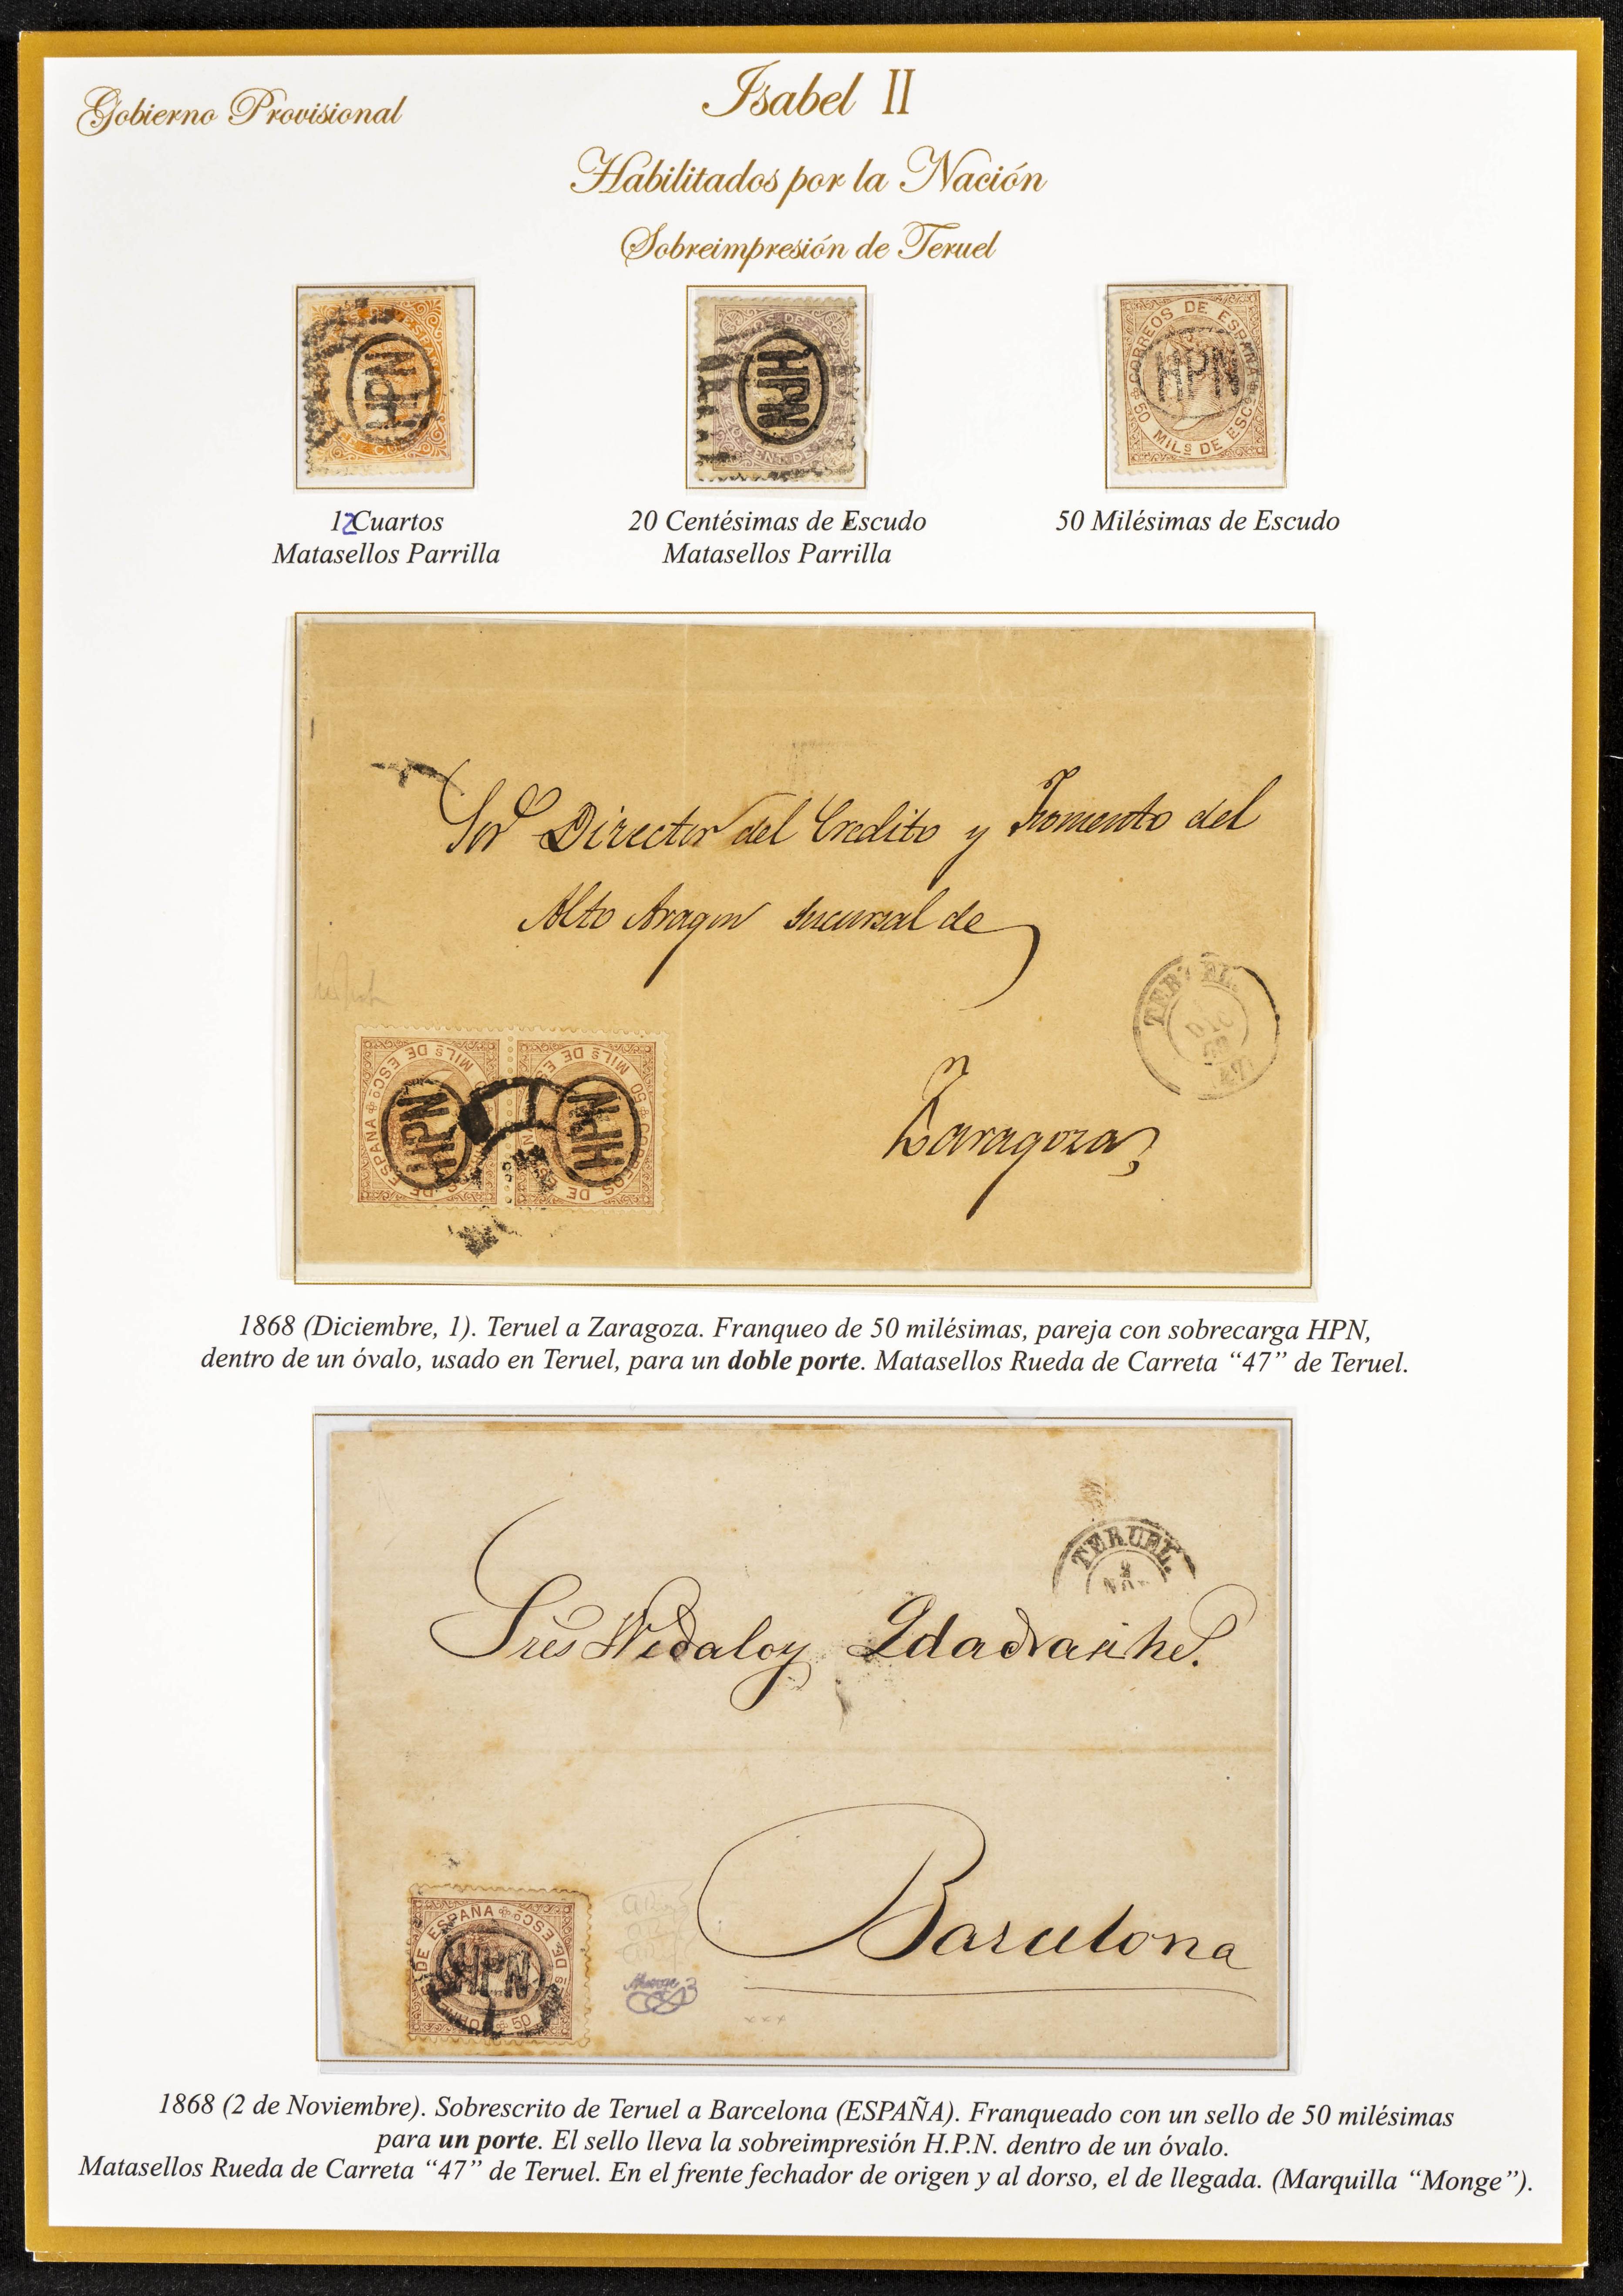 Gobierno Provisional
Isabel II
Habilitados por la Nación
Sobreimpresión de Teruel
HPN
HPN
CORREOS DE ESPAÑA
HPN
50 MILS DE ESCO
12 Cuartos
Matasellos Parrilla
20 Centésimas de Escudo
Matasellos Parrilla
50 Milésimas de Escudo
Sor Director del Credito y Fomento del
Alto Aragon sucursal de
TERUEL.
DIC
Zaragoza
HPN
HPN
1868 (Diciembre, 1). Teruel a Zaragoza. Franqueo de 50 milésimas, pareja con sobrecarga HPN,
dentro de un óvalo, usado en Teruel, para un doble porte. Matasellos Rueda de Carreta “47” de Teruel.
TERUEL.
2
NOV
Sres
Barcelona
DE ESPAÑA
HPN
50
Monge
1868 (2 de Noviembre). Sobrescrito de Teruel a Barcelona (ESPAÑA). Franqueado con un sello de 50 milésimas
para un porte. El sello lleva la sobreimpresión H.P.N. dentro de un óvalo.
Matasellos Rueda de Carreta “47” de Teruel. En el frente fechador de origen y al dorso, el de llegada. (Marquilla “Monge”).